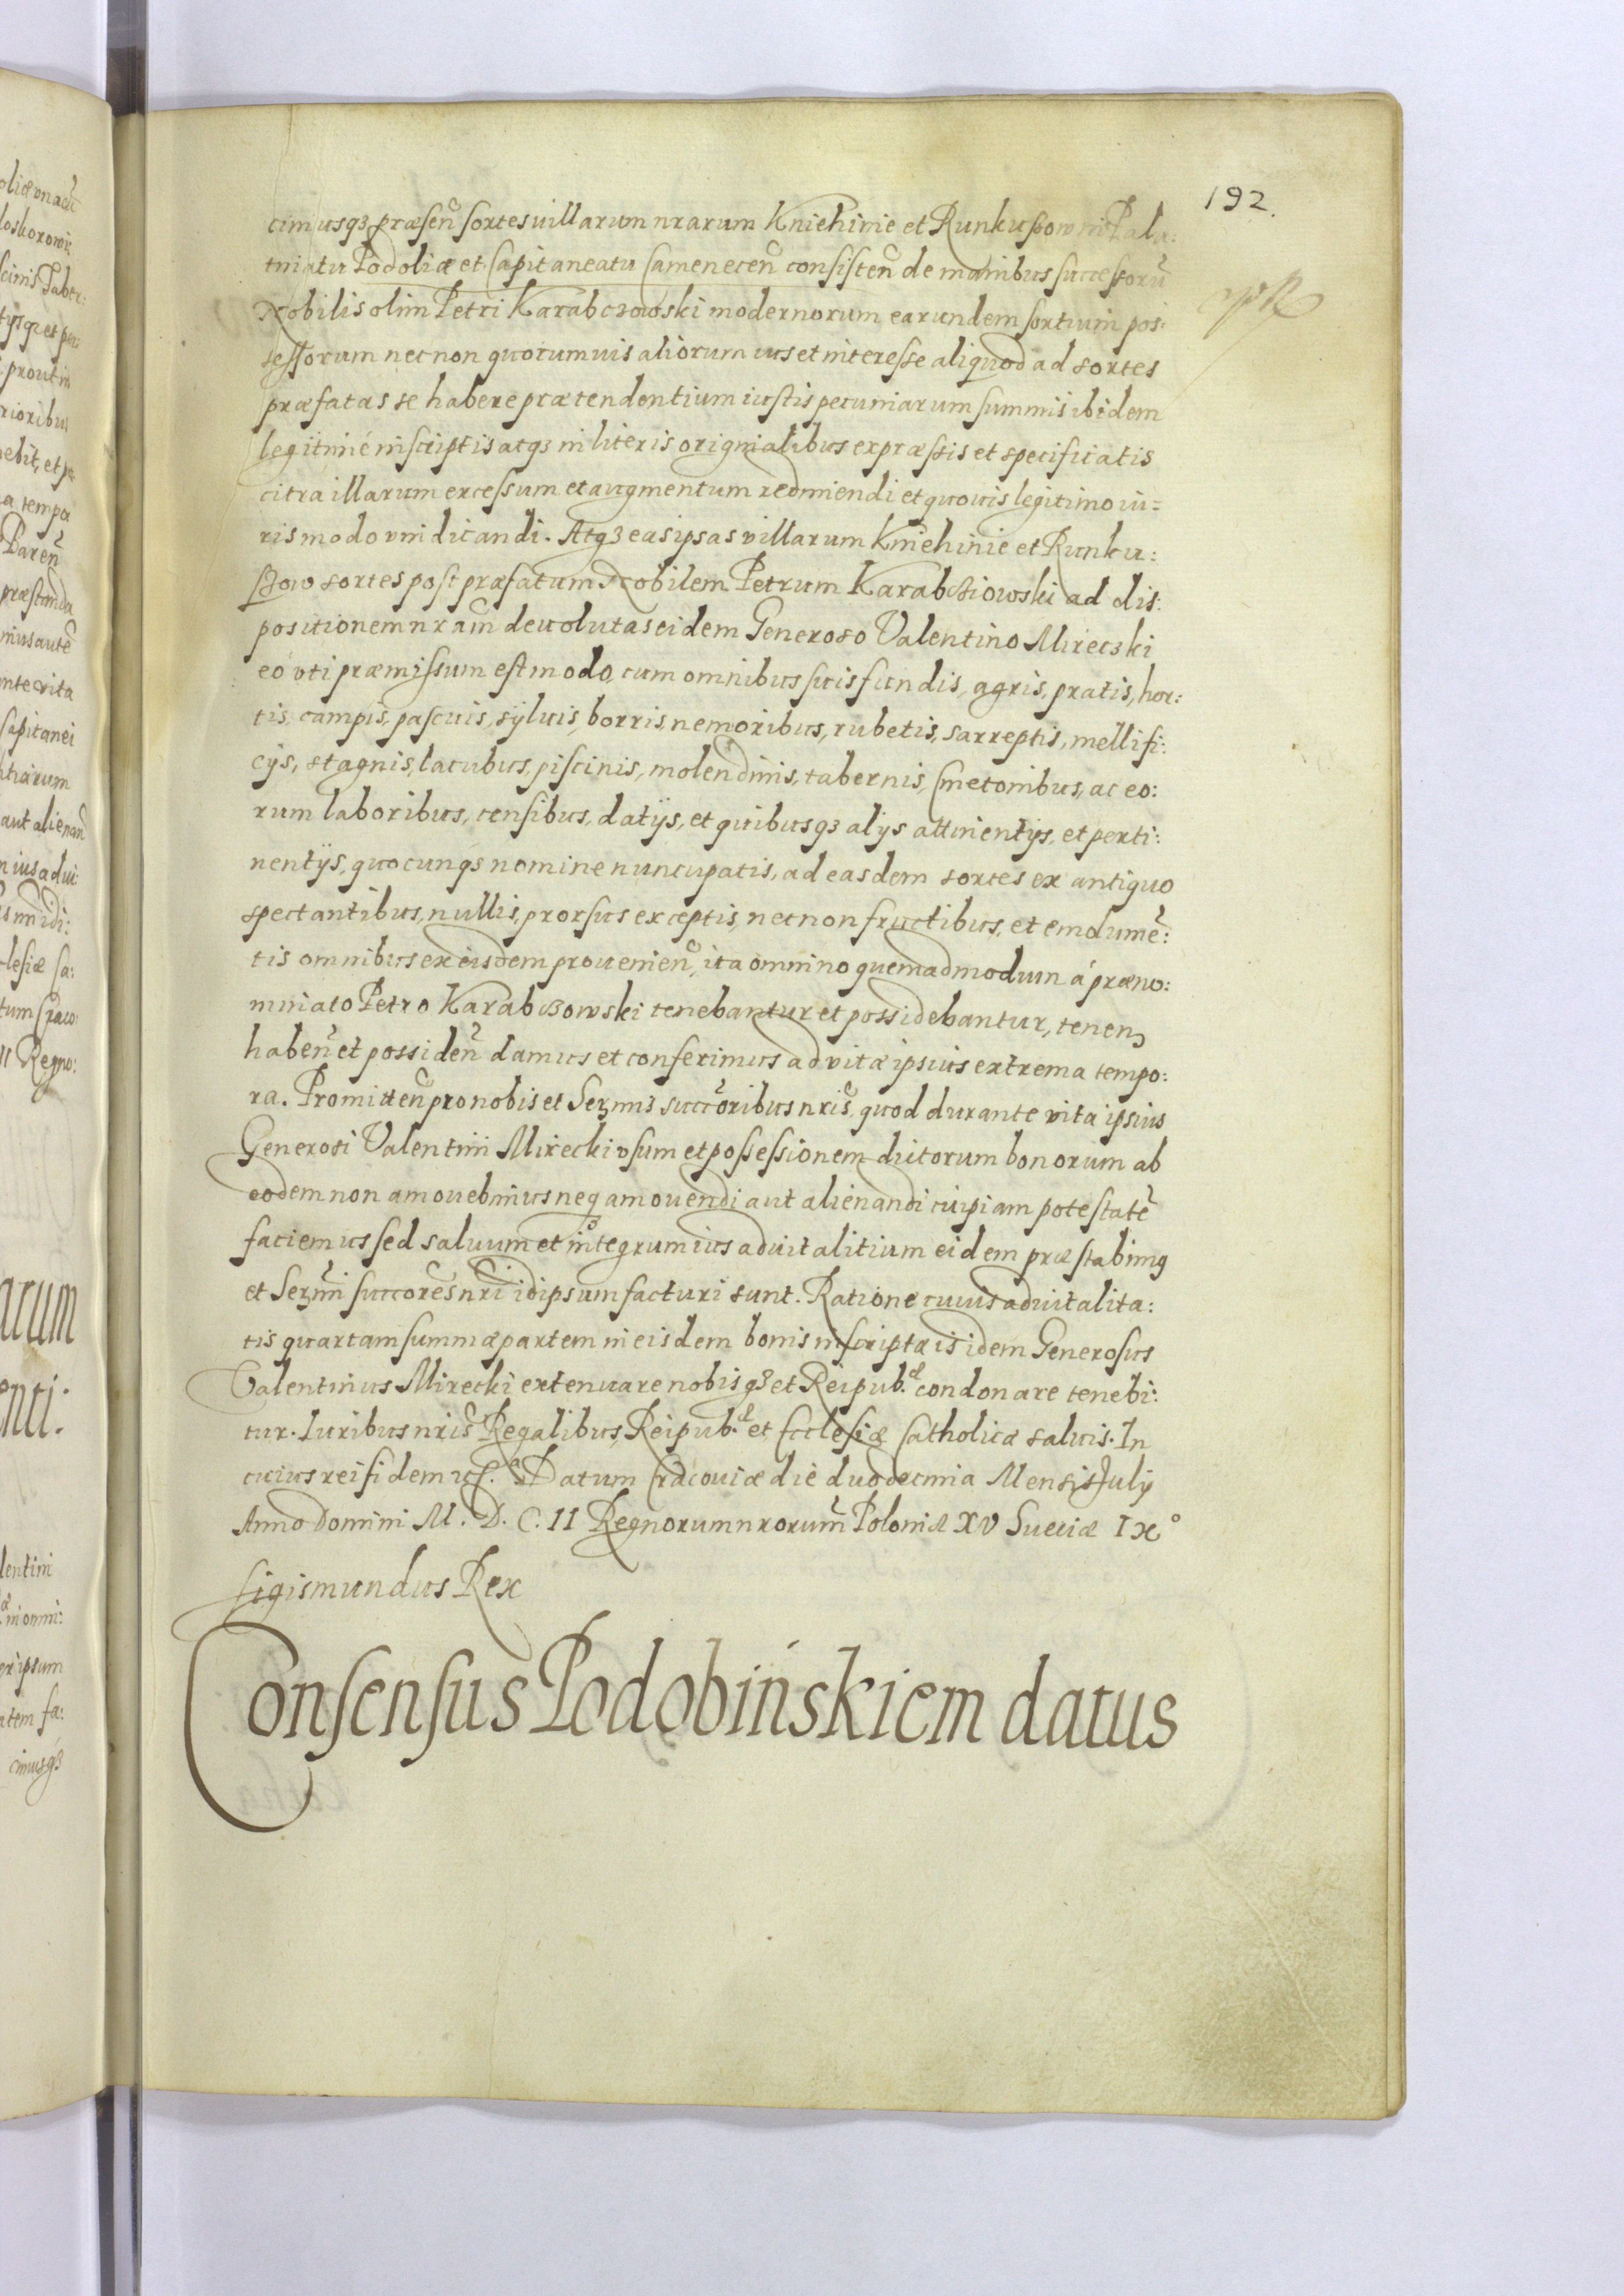 192.
cimusqȝ præsen̄ sortes villarum nrarum Kniehinie et Runkuszow in Pala:
tinatu Podoliæ et Capitaneatu Camenecen̄ consisten̄ de manibus successorū
Nobilis olim Petri Karabczowski modernorum earundem sortium pos:
sessorum necnon quorumuis aliorum ius et interesse aliquod ad sortes
præfatas se habere prætendentium iustis pecuniarum summis ibidem
legitimé inscriptis atqȝ in literis originalibus expræssis et specificatis
citra illarum excessum et augmentum redimendi et quouis legitimo iu=
ris modo vindicandi. Atqȝ eas ipsas villarum Kniehinie et Runku:
szow sortes post præfatum Nobilem Petrum Karabcziowski ad dis:
positionem nram̄ deuolutas eidem Generoso Valentino Mirecski
eo vti præmissum est modo, cum omnibus suis fundis, agris, pratis, hor:
tis, campis, pascuis, syluis, borris, nemoribus, rubetis, sarreptis, mellifi:
cijs, stagnis, lacubus, piscinis, molendinis, tabernis, Cmetonibus, ac eo:
rum laboribus, censibus, datijs, et quibusqȝ alijs attinentijs, et perti:
nentijs, quocunqȝ nomine nuncupatis, ad easdem sortes ex antiquo
spectantibus, nullis, prorsus exceptis, necnon fructibus, et emolumē:
tis omnibus ex eisdem prouenien̄, ita omnino quemadmodum á præno:
minato Petro Karabczowski tenebantur et possidebantur, tenen̄
haben̄ et possiden̄ damus et conferimus ad vitæ ipsius extrema tempo:
ra. Promitten̄ pro nobis et Serm̄is succōribus nris̄, quod durante vita ipsius
Generosi Valentini Mirecki vsum et possessionem dictorum bonorum ab
eodem non amouebimus neq amouendi aut alienandi cuipiam potestatē
faciemus sed saluum et integrum ius aduitalitium eidem præstabimq
et Serm̄i succores̄ nri̅ idipsum facturi sunt. Ratione cuius aduitalita:
tis quartam summæ partem in eisdem bonis inscriptæ is idem Generosus
Valentinus Mirecki extenuare nobisqȝ et Reipub.æ condonare tenebi:
tur. Iuribus nris̄ Regalibus, Reipub.æ et Ecclesiæ Catholicæ saluis. In
cuius rei fidem &c. Datum Cracouiæ die duodecima Mensis July
Anno Domini M. D. C. II Regnorum nrorum̄ Poloniæ XV Sueciæ IXº
Sigismundus Rex
Consensus Podobińskiem datus